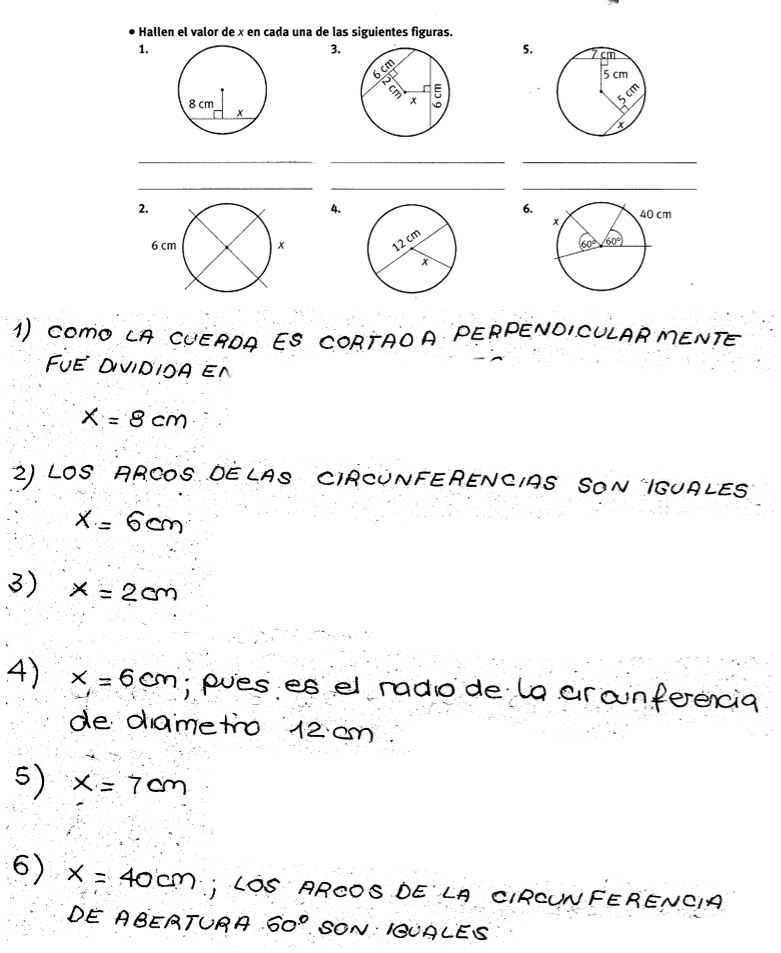 • Hallen el valor de x en cada una de las siguientes figuras.
1.
8 cm
x
3.
6 cm
2 cm
x
6 cm
5.
7 cm
5 cm
5 cm
x
2.
6 cm
x
4.
12 cm
x
6.
x
40 cm
60°
60°
1) COMO LA CUERDA ES CORTADA PERPENDICULARMENTE
FUE DIVIDIDA EN
X = 8 cm
2) LOS ARCOS DE LAS CIRCUNFERENCIAS SON IGUALES
X = 6cm
3) x = 2cm
4) x = 6cm; pues es el radio de la circunferencia
de diametro 12 cm.
5) x = 7cm
6) x = 40cm; LOS ARCOS DE LA CIRCUNFERENCIA
DE ABERTURA 60° SON IGUALES